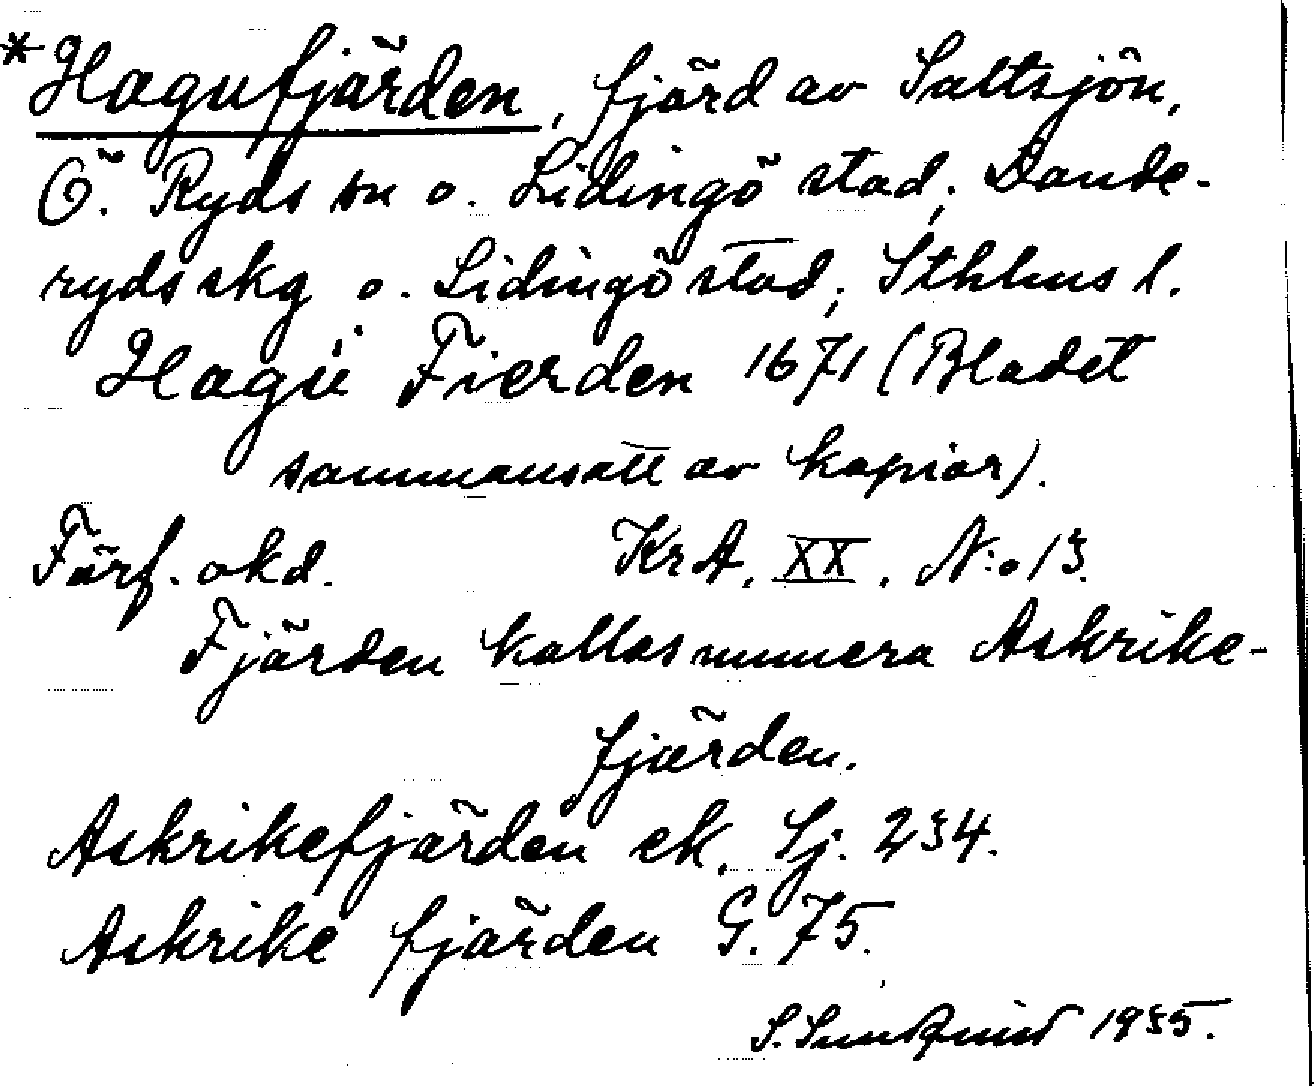 *Hagufjärden, fjärd av Saltsjön,
Ö. Ryds sn o. Lidingö stad; Dande-
ryds skg o. Lidingö stad; Sthlms l.
Hagü Fierden 1671 (Bladet
sammansatt av kopior).
Förf. okd. KrA, XX, N:o 13.
Fjärden kallas numera Askrike-
fjärden.
Askrikefjärden ek. Sj. 234.
Askrike fjärden G. 75.
S. Sundqvist 1935.